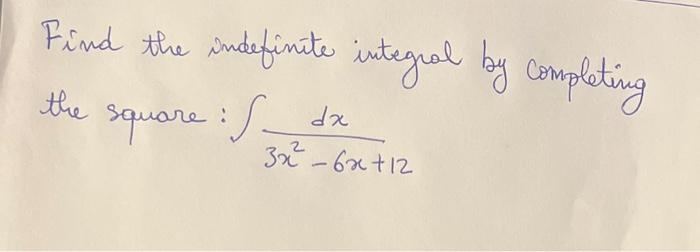 Find the indefinite integral by completing
the square : ∫ dx / (3x² - 6x + 12)